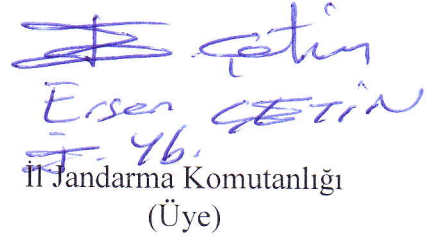 Çetin
Ersen ÇETİN
J. Yb.
İl Jandarma Komutanlığı
(Üye)